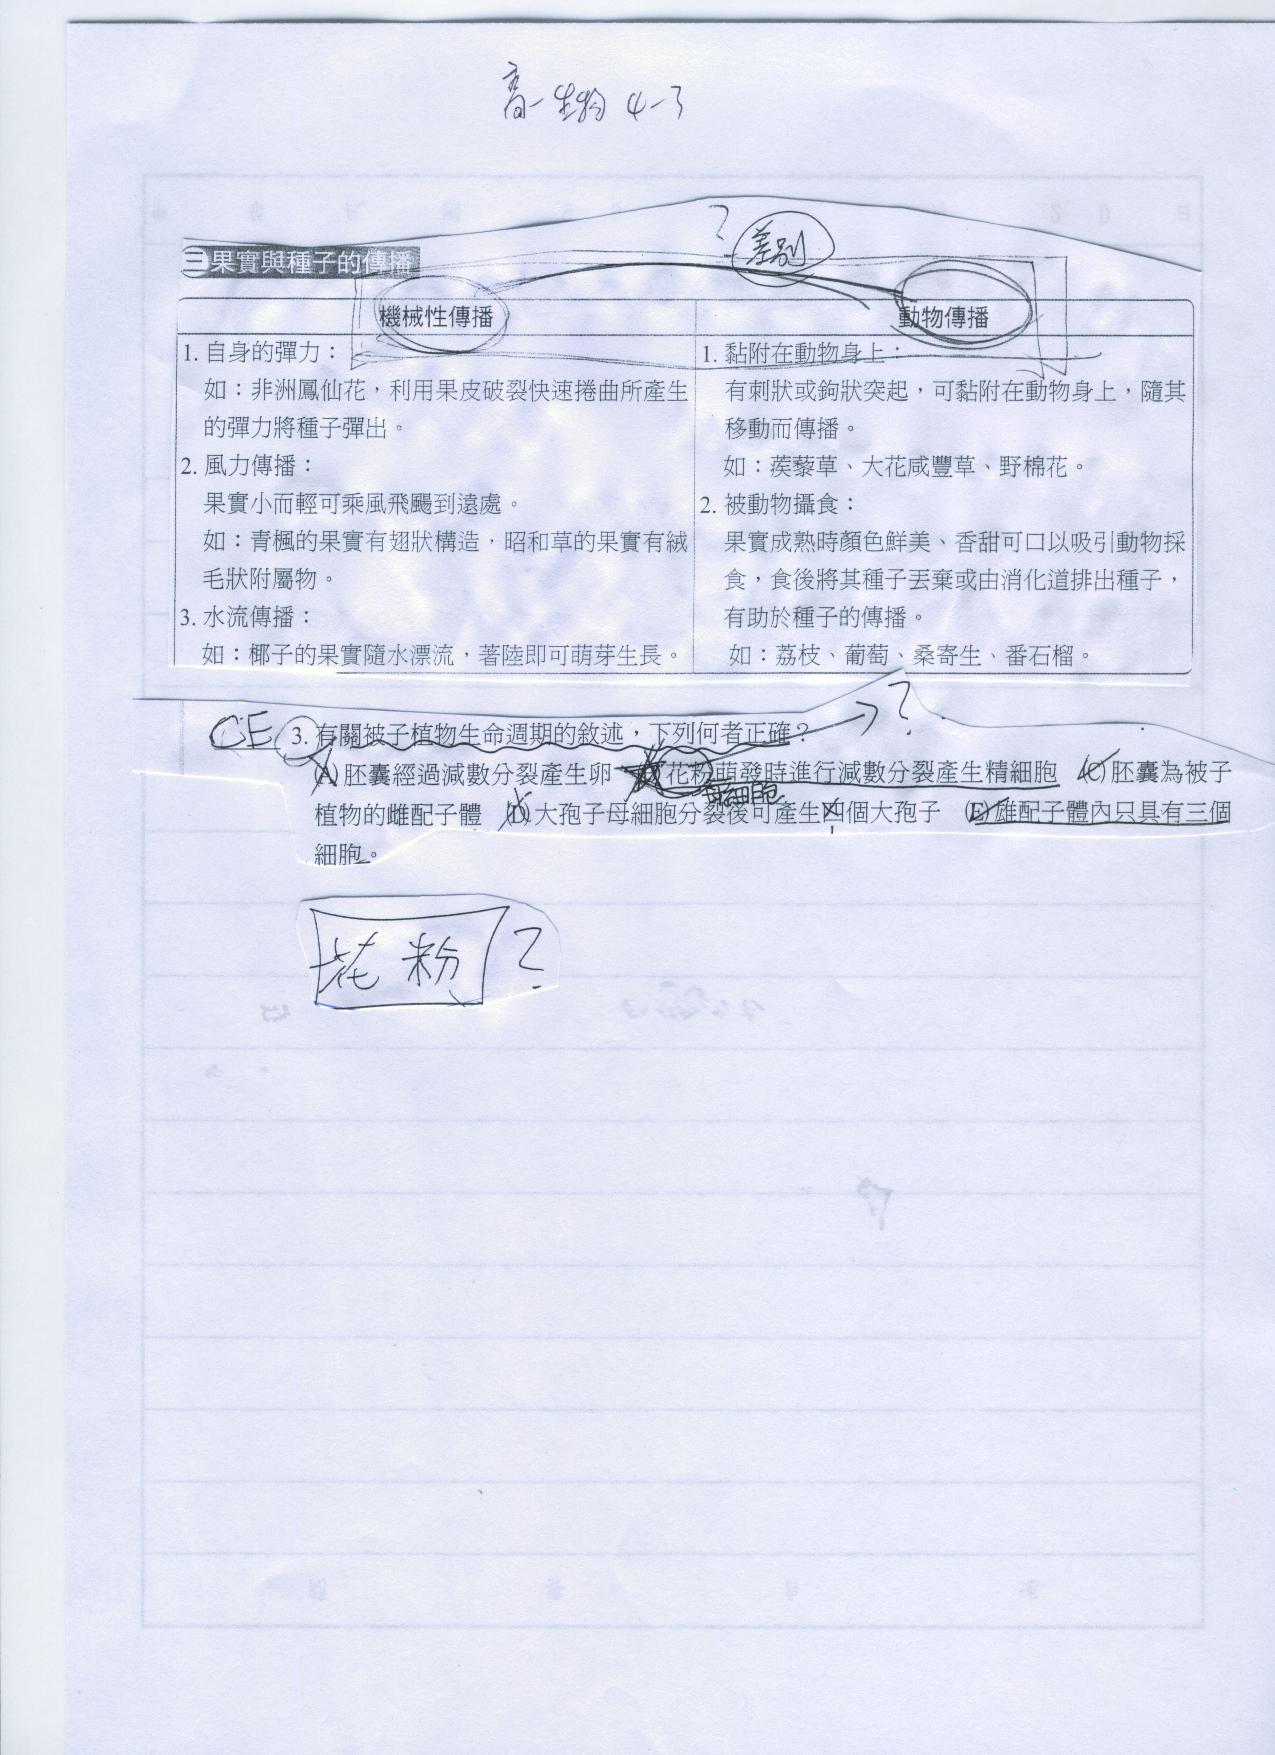 高一生物 4-3
?
差別
三果實與種子的傳播
機械性傳播
1. 自身的彈力：
如：非洲鳳仙花，利用果皮破裂快速捲曲所產生
的彈力將種子彈出。
2. 風力傳播：
果實小而輕可乘風飛颺到遠處。
如：青楓的果實有翅狀構造，昭和草的果實有絨
毛狀附屬物。
3. 水流傳播：
如：椰子的果實隨水漂流，著陸即可萌芽生長。
動物傳播
1. 黏附在動物身上：
有刺狀或鉤狀突起，可黏附在動物身上，隨其
移動而傳播。
如：蒺藜草、大花咸豐草、野棉花。
2. 被動物攝食：
果實成熟時顏色鮮美、香甜可口以吸引動物採
食，食後將其種子丟棄或由消化道排出種子，
有助於種子的傳播。
如：荔枝、葡萄、桑寄生、番石榴。
CE 3. 有關被子植物生命週期的敘述，下列何者正確？ ?
(A) 胚囊經過減數分裂產生卵 花粉萌發時進行減數分裂產生精細胞 (C) 胚囊為被子
母細胞
植物的雌配子體 (D) 大孢子母細胞分裂後可產生四個大孢子 (E) 雄配子體內只具有三個
細胞。
花粉 ?